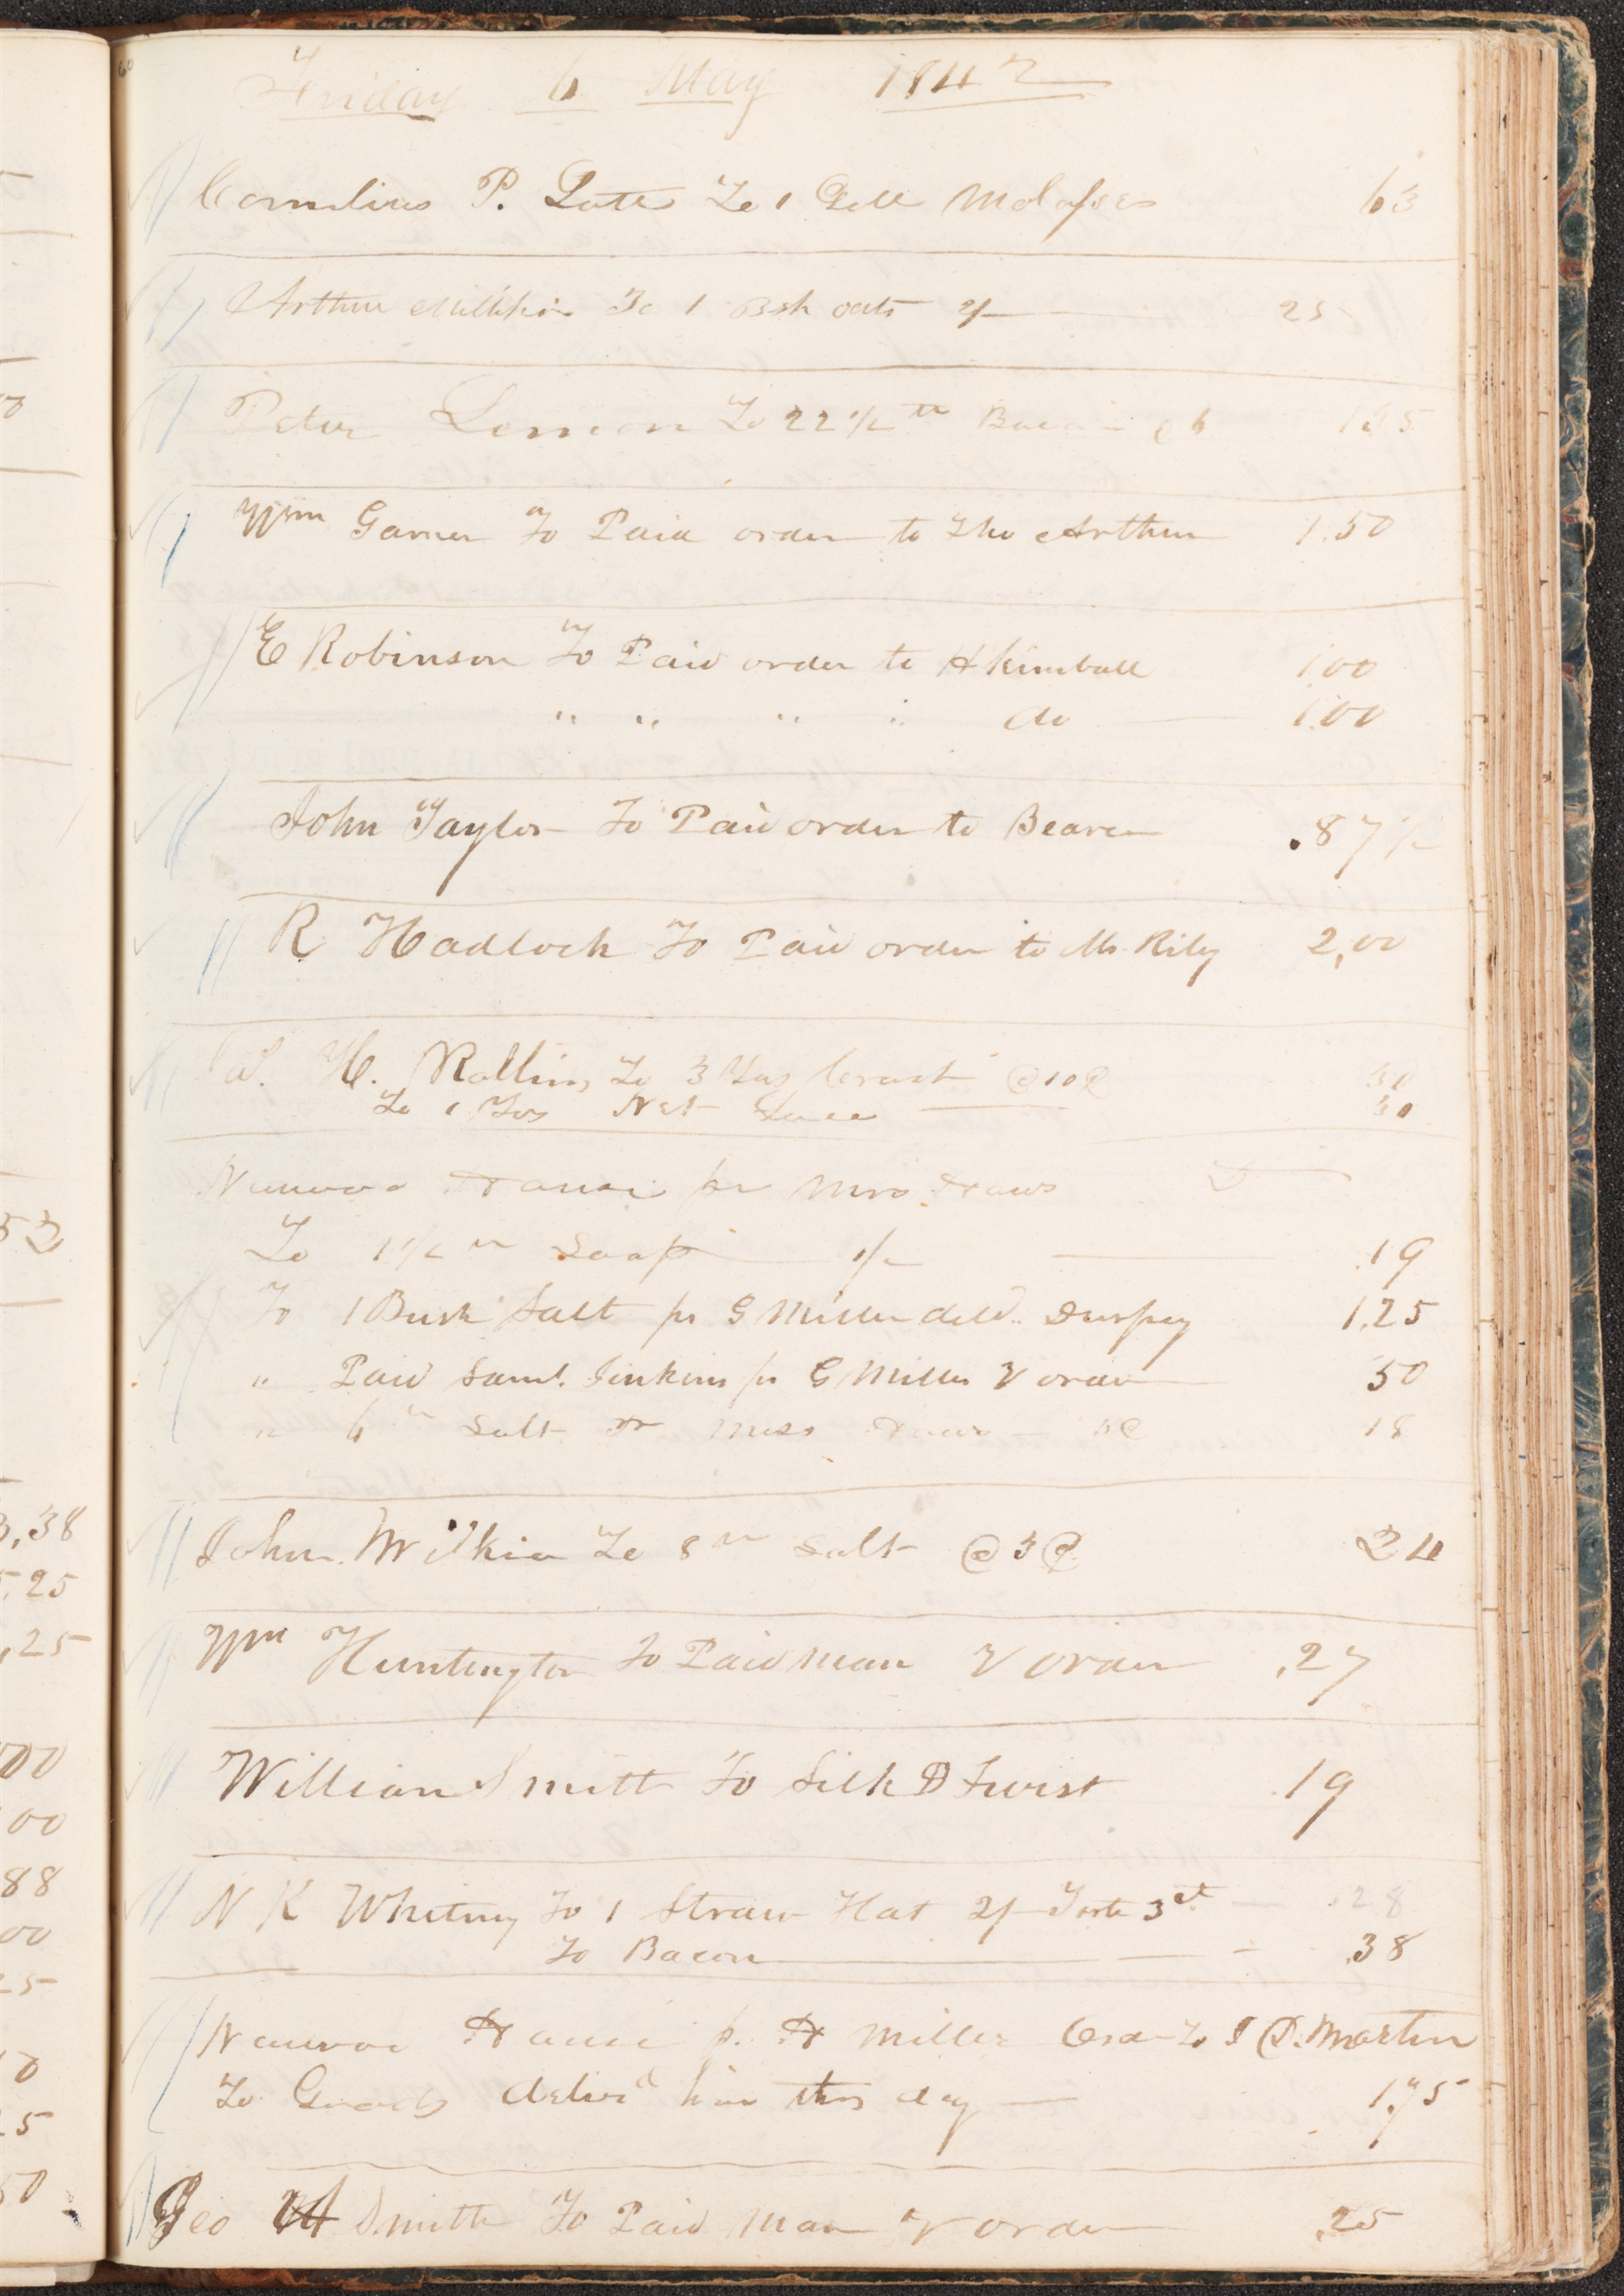 60
Friday 6 May 1842
Cornelius P. Lott To 1 Gall Molasses 63
Arthur Millikin To 1 Bsh oats 2/ 25
Peter To 22 1/2 lb Bacon @ 6 135
Wm Garner To Paid order to Tho Arthur 1.50
E Robinson To Paid order to H Kimball 1.00
" " " " do 1.00
John Taylor To Paid order to Bearer .87 1/2
R Hadlock To Paid order to Mr Rily 2,00
H. Rollins To 3 Yds @ 10 ¢ 30
To 1 Yds Net Lace
Nauvoo House pr Mrs Haws
To 1 1/2 lb Soap 1/ .19
To 1 Bush Salt pr G Miller deld. Durfey 1.25
" Paid Saml. Jinkins pr G Miller V order 50
" 6 lb Salt pr Miss Haws 3¢ 18
John Wilkie To 8 lb Salt @ 3¢ 24
Wm Huntington To Paid man V order .27
William Smith To Silk & Twist .19
N K Whitney To 1 Straw Hat 2/ 3ct .28
To Bacon .38
Nauvoo House p. H Miller Ord To Martin
To Goods delivd him this day 1.75
Geo A Smith To Paid man V order .25
52
3,38
5.25
,25
00
00
88
00
25
0
25
50